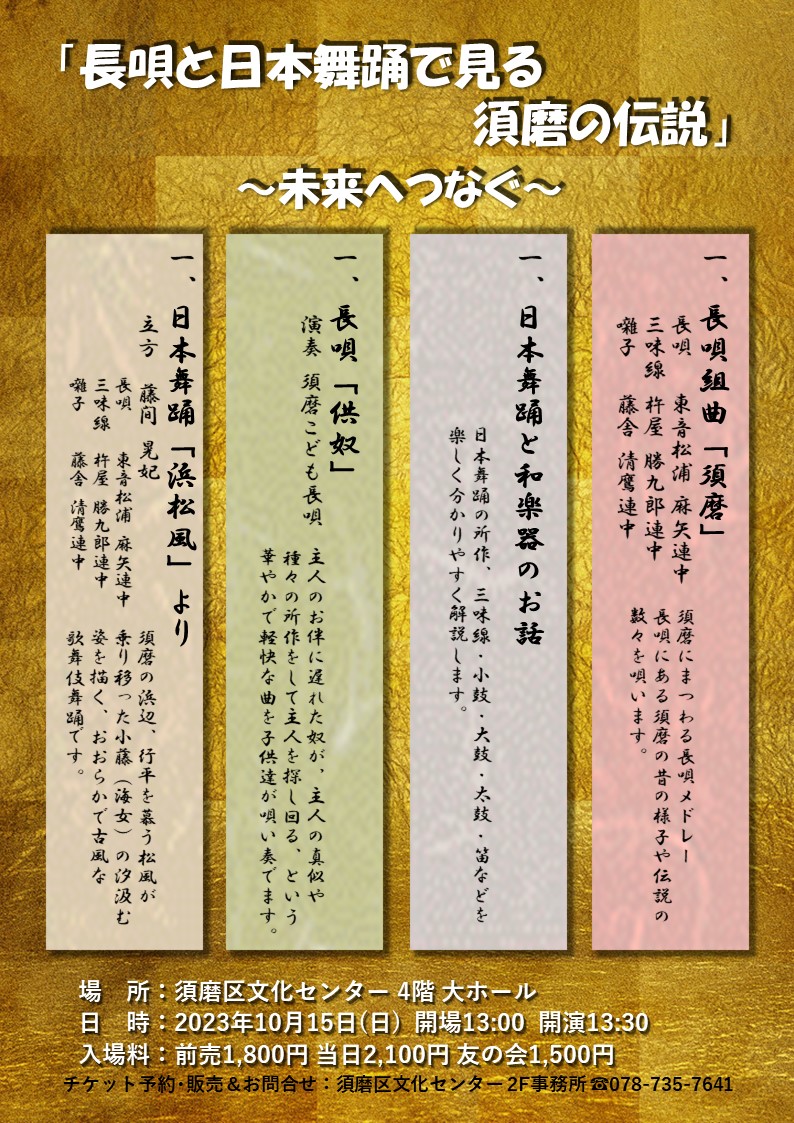 「長唄と日本舞踊で見る
須磨の伝説」
～未来へつなぐ～
一、長唄組曲「須磨」
長唄 東音松浦 麻矢連中
三味線 杵屋 勝九郎連中
囃子 藤舎 清鷹連中
須磨にまつわる長唄メドレー
長唄にある須磨の昔の様子や伝説の
数々を唄います。
一、日本舞踊と和楽器のお話
日本舞踊の所作、三味線・小鼓・大鼓・太鼓・笛などを
楽しく分かりやすく解説します。
一、長唄「供奴」
演奏 須磨こども長唄
主人のお伴に遅れた奴が、主人の真似や
種々の所作をして主人を探し回る、という
華やかで軽快な曲を子供達が唄い奏でます。
一、日本舞踊「浜松風」より
立方 藤間 晃妃
長唄 東音松浦 麻矢連中
三味線 杵屋 勝九郎連中
囃子 藤舎 清鷹連中
須磨の浜辺、行平を慕う松風が
乗り移った小藤（海女）の汐汲む
姿を描く、おおらかで古風な
歌舞伎舞踊です。
場　所：須磨区文化センター 4階 大ホール
日　時：2023年10月15日(日) 開場13:00 開演13:30
入場料：前売1,800円 当日2,100円 友の会1,500円
チケット予約･販売＆お問合せ：須磨区文化センター2F事務所☎078-735-7641